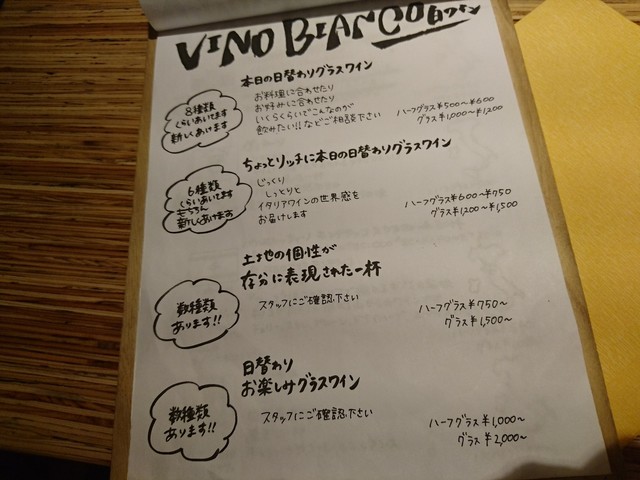 VINO BIANCO 白ワイン
本日の日替わりグラスワイン
8種類
くらいあいてます
新しくあけます
お料理に合わせたり
お好みに合わせたり
いくらくらいでこんなのが
飲みたい!!などご相談下さい
ハーフグラス¥500〜¥600
グラス¥1,000〜¥1,200
ちょっとリッチに本日の日替わりグラスワイン
6種類
くらいあいてます
もちろん
新しくあけます
じっくり
しっとりと
イタリアワインの世界感を
お届けします
ハーフグラス¥600〜¥750
グラス¥1,200〜¥1,500
土地の個性が
存分に表現された一杯
数種類
あります!!
スタッフにご確認下さい
ハーフグラス¥750〜
グラス¥1,500〜
日替わり
お楽しみグラスワイン
数種類
あります!!
スタッフにご確認下さい
ハーフグラス¥1,000〜
グラス¥2,000〜